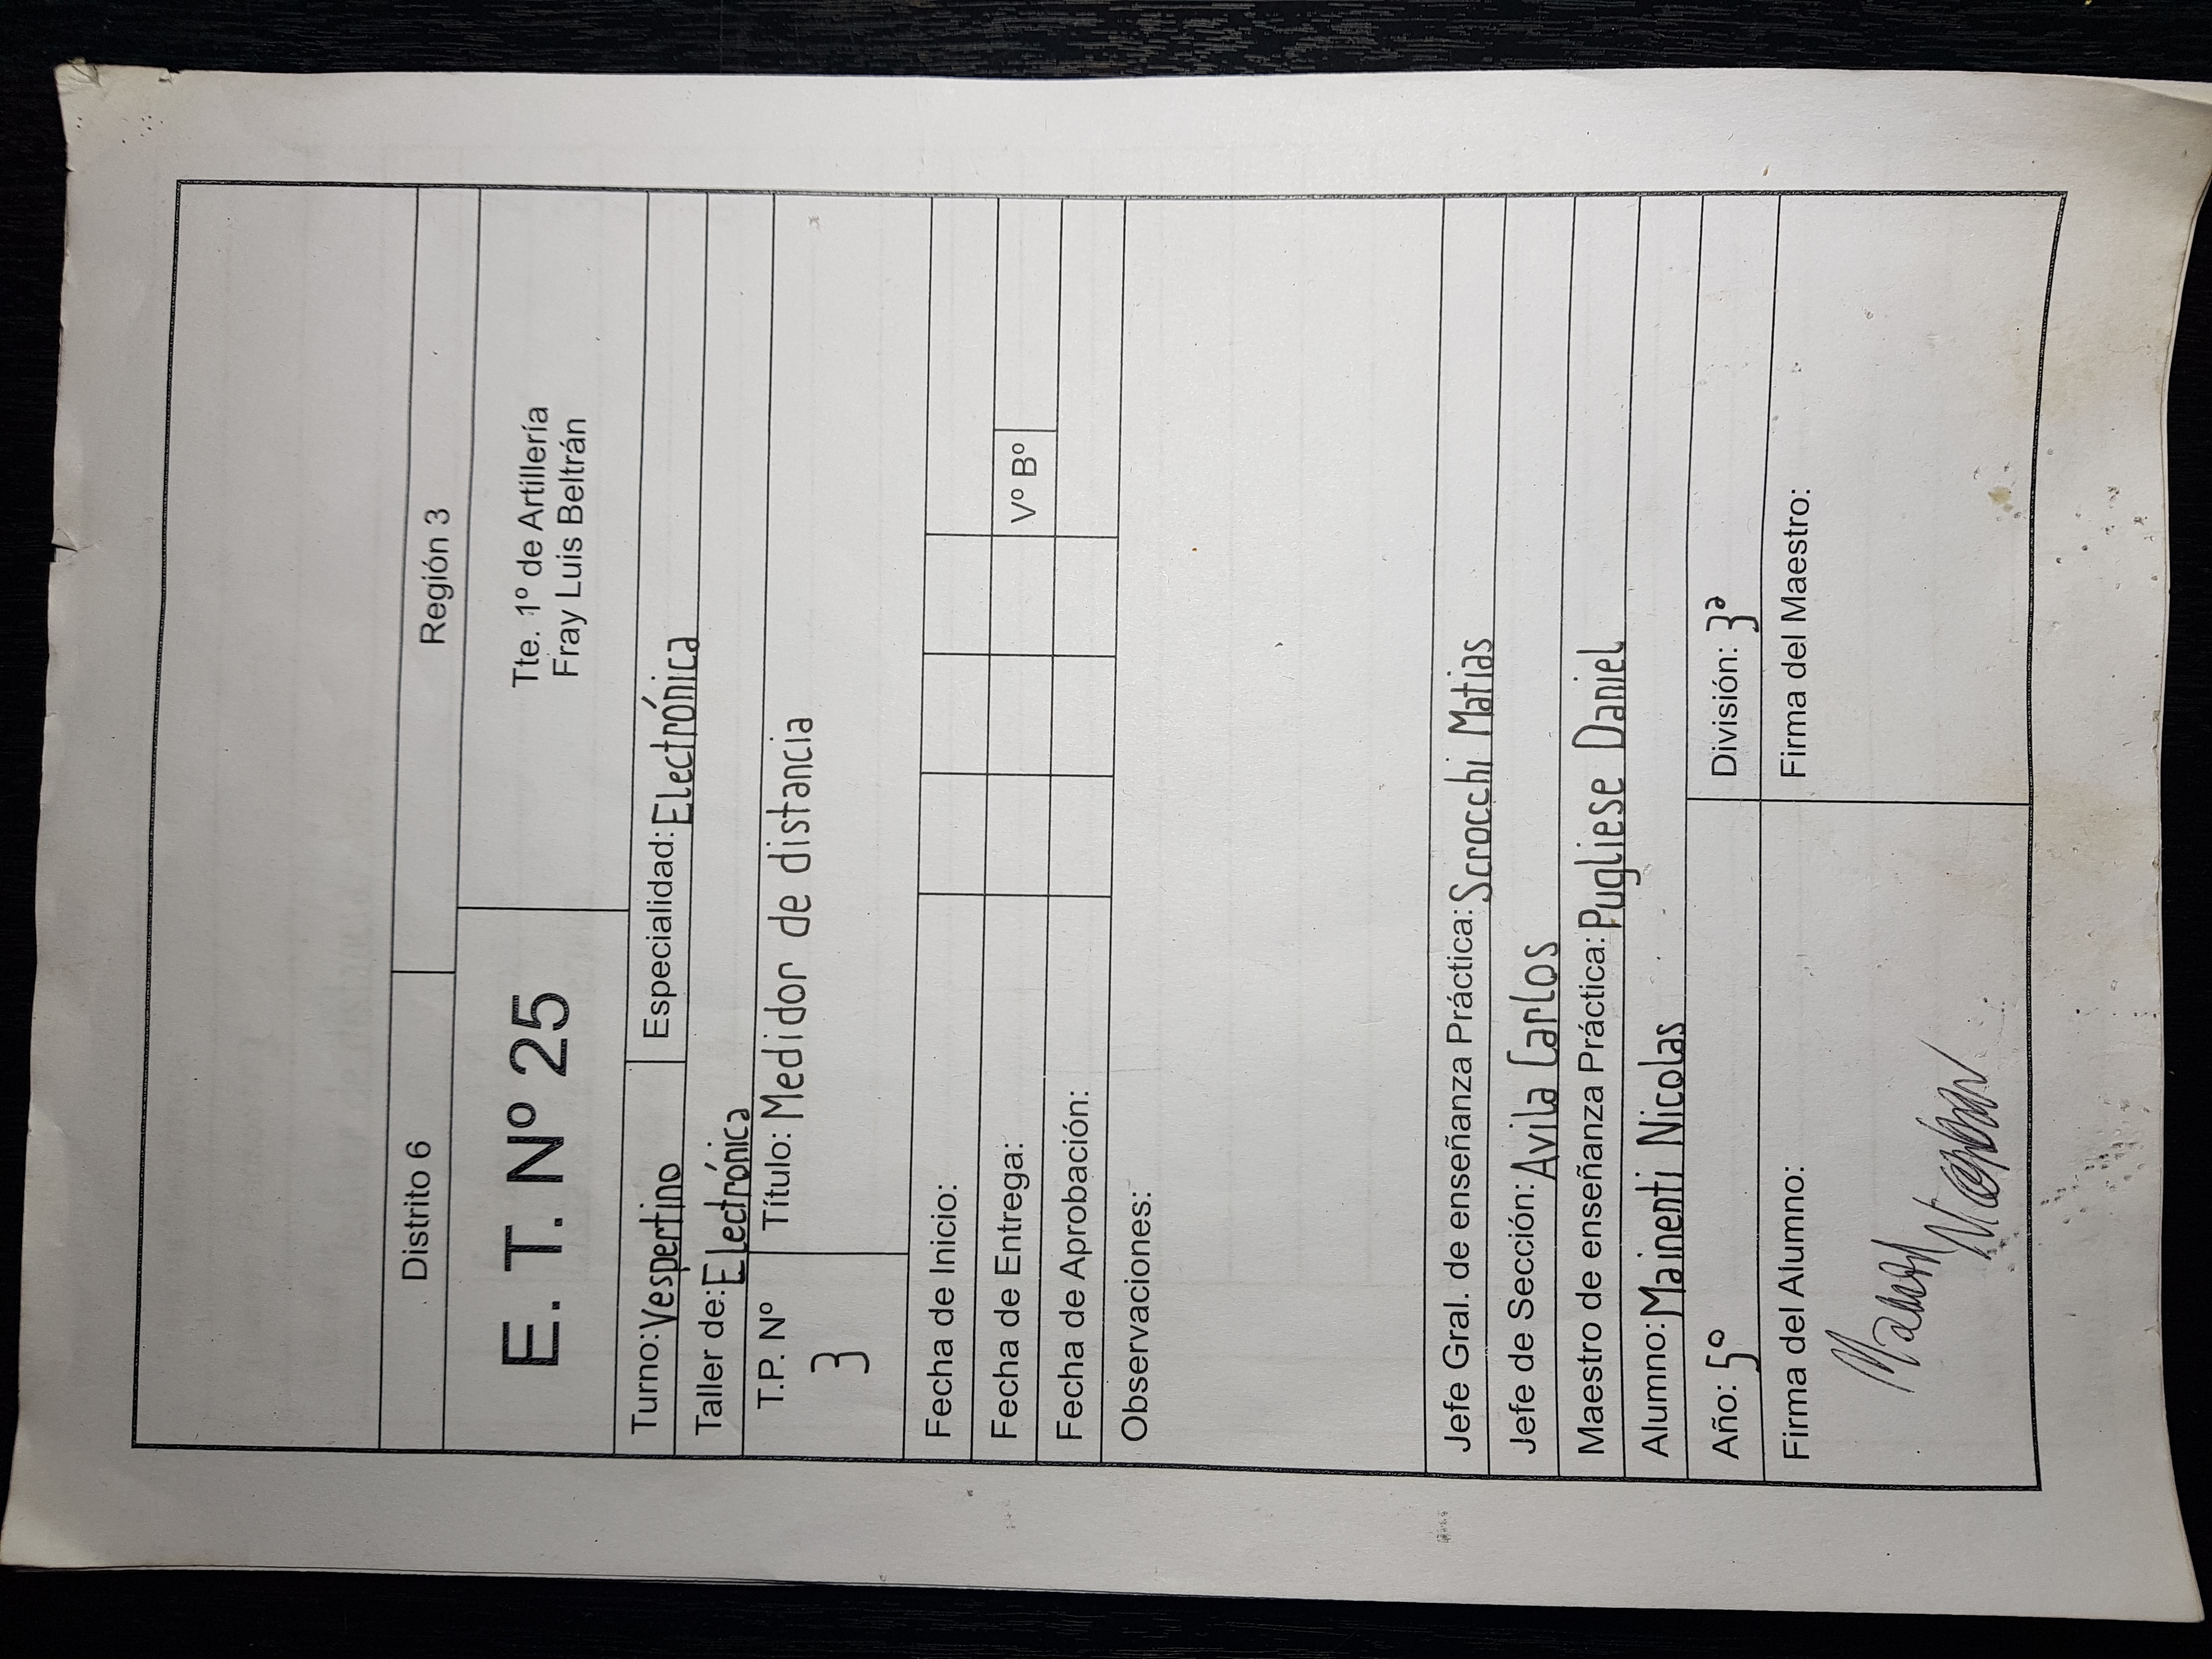 Distrito 6
Región 3
E. T. Nº 25
Tte. 1º de Artillería
Fray Luis Beltrán
Turno: Vespertino
Especialidad: Electrónica
Taller de: Electrónica
T.P. Nº
3
Título: Medidor de distancia
Fecha de Inicio:
Fecha de Entrega:
Vº Bº
Fecha de Aprobación:
Observaciones:
Jefe Gral. de enseñanza Práctica: Scrocchi Matias
Jefe de Sección: Avila Carlos
Maestro de enseñanza Práctica: Pugliese Daniel
Alumno: Mainenti Nicolas
Año: 5º
División: 3ª
Firma del Alumno:
Firma del Maestro: